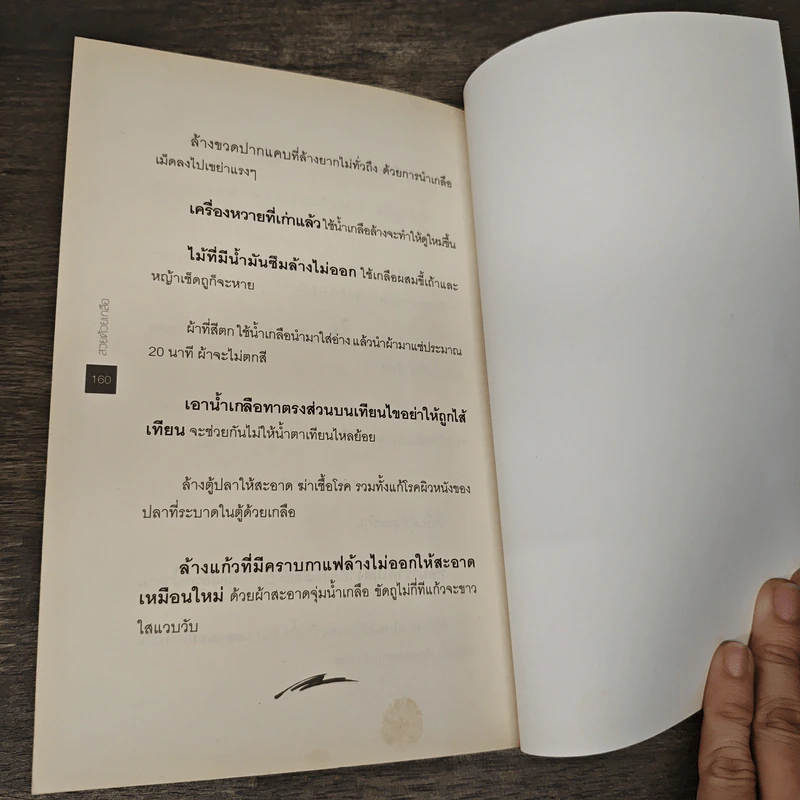 ล้างขวดปากแคบที่ล้างยากไม่ทั่วถึง ด้วยการนำเกลือ
เม็ดลงไปเขย่าแรงๆ
เครื่องหวายที่เก่าแล้ว ใช้น้ำเกลือล้างจะทำให้ดูใหม่ขึ้น
ไม้ที่มีน้ำมันซึมล้างไม่ออก ใช้เกลือผสมขี้เถ้าและ
หญ้าเช็ดถูก็จะหาย
ผ้าที่สีตก ใช้น้ำเกลือนำมาใส่อ่าง แล้วนำผ้ามาแช่ประมาณ
20 นาที ผ้าจะไม่ตกสี
เอาน้ำเกลือทาตรงส่วนบนเทียนไขอย่าให้ถูกไส้
เทียน จะช่วยกันไม่ให้น้ำตาเทียนไหลย้อย
ล้างตู้ปลาให้สะอาด ฆ่าเชื้อโรค รวมทั้งแก้โรคผิวหนังของ
ปลาที่ระบาดในตู้ด้วยเกลือ
ล้างแก้วที่มีคราบกาแฟล้างไม่ออกให้สะอาด
เหมือนใหม่ ด้วยผ้าสะอาดจุ่มน้ำเกลือ ขัดถูไม่กี่ทีแก้วจะขาว
ใสแวบวับ
สวยด้วยเกลือ
160